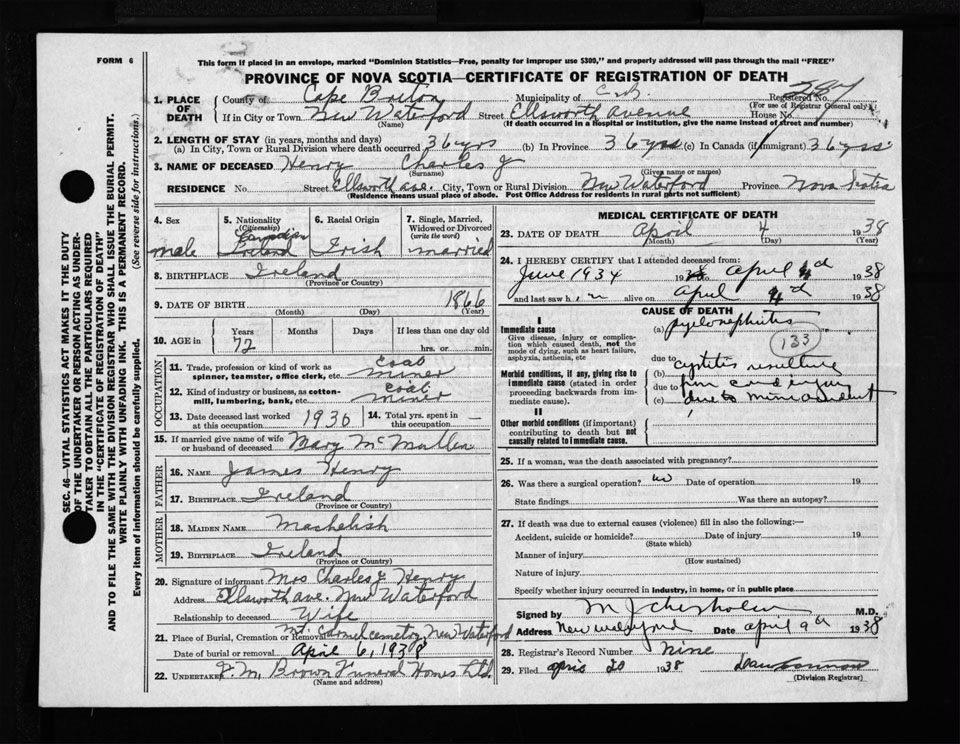 FORM 6
This form if placed in an envelope, marked "Dominion Statistics—Free, penalty for improper use $300," and properly addressed will pass through the mail "FREE"
PROVINCE OF NOVA SCOTIA—CERTIFICATE OF REGISTRATION OF DEATH
1. PLACE OF DEATH
County of Cape Breton Municipality of C.B. Registered No. 287
(For use of Registrar General only)
If in City or Town New Waterford Street Ellsworth Avenue House No.
(Name) (If death occurred in a Hospital or Institution, give the name instead of street and number)
2. LENGTH OF STAY (in years, months and days)
(a) In City, Town or Rural Division where death occurred 36 yrs (b) In Province 36 yrs (c) In Canada (if immigrant) 36 yrs
3. NAME OF DECEASED Henry Charles J
(Surname) (Given name or names)
RESIDENCE No. Street Ellsworth ave. City, Town or Rural Division New Waterford Province Nova Scotia
(Residence means usual place of abode. Post Office Address for residents in rural parts not sufficient)
4. Sex
male
5. Nationality (Citizenship)
Canadian
Ireland
6. Racial Origin
Irish
7. Single, Married, Widowed or Divorced (write the word)
married
8. BIRTHPLACE Ireland
(Province or County)
9. DATE OF BIRTH 1866
(Month) (Day) (Year)
10. AGE in Years Months Days If less than one day old
72 hrs. or min.
OCCUPATION
11. Trade, profession or kind of work as spinner, teamster, office clerk, etc. coal miner
12. Kind of industry or business, as cotton-mill, lumbering, bank, etc. coal miner
13. Date deceased last worked at this occupation 1930
14. Total yrs. spent in this occupation —
15. If married give name of wife or husband of deceased Mary McMullen
FATHER
16. NAME James Henry
17. BIRTHPLACE Ireland
(Province or Country)
MOTHER
18. MAIDEN NAME
19. BIRTHPLACE Ireland
(Province or Country)
20. Signature of informant Mrs Charles J Henry
Address Ellsworth ave. New Waterford
Relationship to deceased Wife
21. Place of Burial, Cremation or Removal Mt. Carmel cemetry, New Waterford
Date of burial or removal April 6, 1938
22. UNDERTAKER F. M. Brown Funeral Homes Ltd.
(Name and address)
MEDICAL CERTIFICATE OF DEATH
23. DATE OF DEATH April 4 1938
(Month) (Day) (Year)
24. I HEREBY CERTIFY that I attended deceased from:
June 1934 19 to April 4d 1938
and last saw him alive on April 4d 1938
CAUSE OF DEATH
I
Immediate cause
Give disease, injury or complication which caused death, not the mode of dying, such as heart failure, asphyxia, asthenia, etc
(a) pyelonephritis
133
due to
Morbid conditions, if any, giving rise to immediate cause (stated in order proceeding backwards from immediate cause).
(b) cystitis resulting
due to from cord injury
(c) due to mine accident
II
Other morbid conditions (if important) contributing to death but not causally related to immediate cause.
25. If a woman, was the death associated with pregnancy?
26. Was there a surgical operation? no Date of operation 19
State findings Was there an autopsy?
27. If death was due to external causes (violence) fill in also the following:—
Accident, suicide or homicide? Date of injury 19
(State which)
Manner of injury
(How sustained)
Nature of injury
Specify whether injury occurred in industry, in home, or in public place
Signed by M J Chisholm M.D.
Address New Waterford Date April 9th 1938
28. Registrar's Record Number nine
29. Filed April 20 1938
(Division Registrar)
SEC. 46—VITAL STATISTICS ACT MAKES IT THE DUTY
OF THE UNDERTAKER OR PERSON ACTING AS UNDER-
TAKER TO OBTAIN ALL THE PARTICULARS REQUIRED
IN THE "CERTIFICATE OF REGISTRATION OF DEATH"
AND TO FILE THE SAME WITH THE DIVISION REGISTRAR WHO SHALL ISSUE THE BURIAL PERMIT.
WRITE PLAINLY WITH UNFADING INK. THIS IS A PERMANENT RECORD.
Every item of information should be carefully supplied. (See reverse side for instructions.)